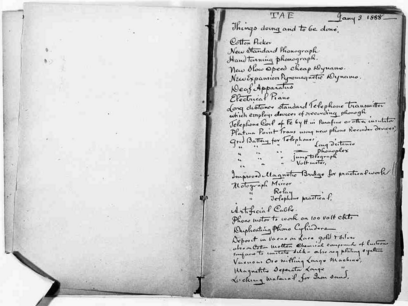 TAE Jany 3 1888
Things doing and to be done,
Cotton Picker
New Standard Phonograph
Hand turning phonograph
New Slow Speed cheap Dynamo.
New Expansion Pyromagnetic Dynamo.
Deaf Apparatus
Electrical Piano
Long distance standard Telephone Transmitter
which employs devices of recording phongh
Telephone Coil of Fe by tt in Parafine or other insulator
Platina Point Trans using new phono Recorder devices,
Grd Battery for Telephones
" " " Long distance
" " " Phonoplex
" " " Jump Telegraph
" " " Voltmeter,
Improved Magnetic Bridge for practical work
Motograph Mirror
" Relay
" Telephone practical,
Artificial Cable
Phono motor to work on 100 volt ckts
Duplicating Phono Cylinders
Deposit in vacuo on Lace gold + silver
also on cotton molten Chemical compound of lustrous
surface to imitate silk - also reg plating system
Vacuous Ore milling Large Machine.
Magnetic Separator Large "
Locking material for Iron sand,